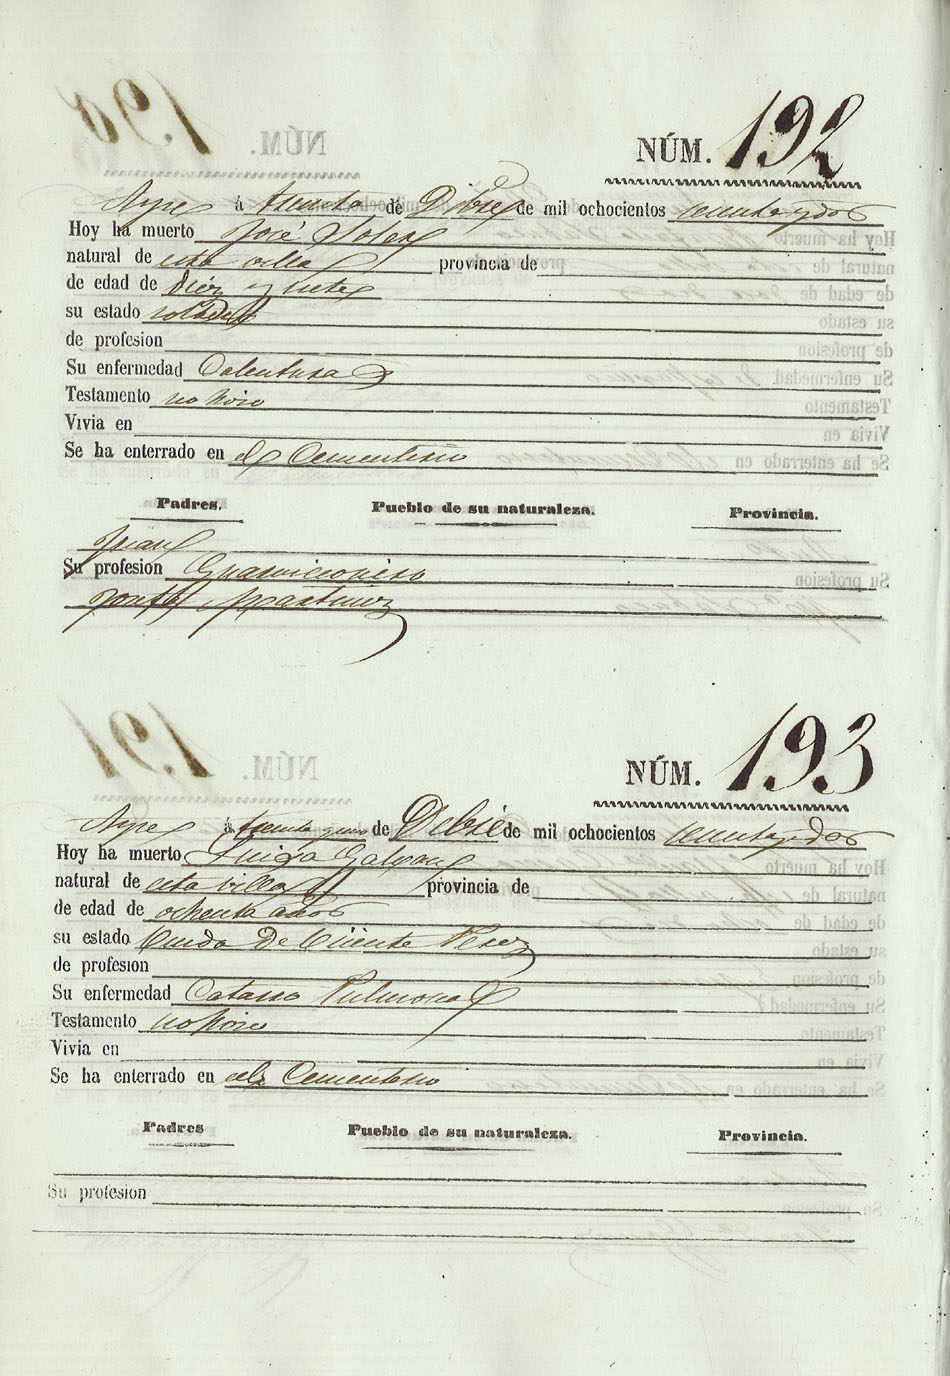 NÚM. 192
Aspe á treinta de Dibre de mil ochocientos sesenta y dos
Hoy ha muerto José Soler
natural de esta villa provincia de
de edad de diez y siete
su estado soltero
de profesion
Su enfermedad Calentura
Testamento no hizo
Vivia en
Se ha enterrado en el Cementerio
Padres. Pueblo de su naturaleza. Provincia.
Juan
Su profesion Guarnicionero
Martinez
NÚM. 193
Aspe á treinta y uno de Dibre de mil ochocientos sesenta y dos
Hoy ha muerto Luisa Galvan
natural de esta villa provincia de
de edad de ochenta años
su estado Viuda de Vicente Perez
de profesion
Su enfermedad Catarro Pulmonal
Testamento no hizo
Vivia en
Se ha enterrado en el Cementerio
Padres Pueblo de su naturaleza. Provincia.
Su profesion